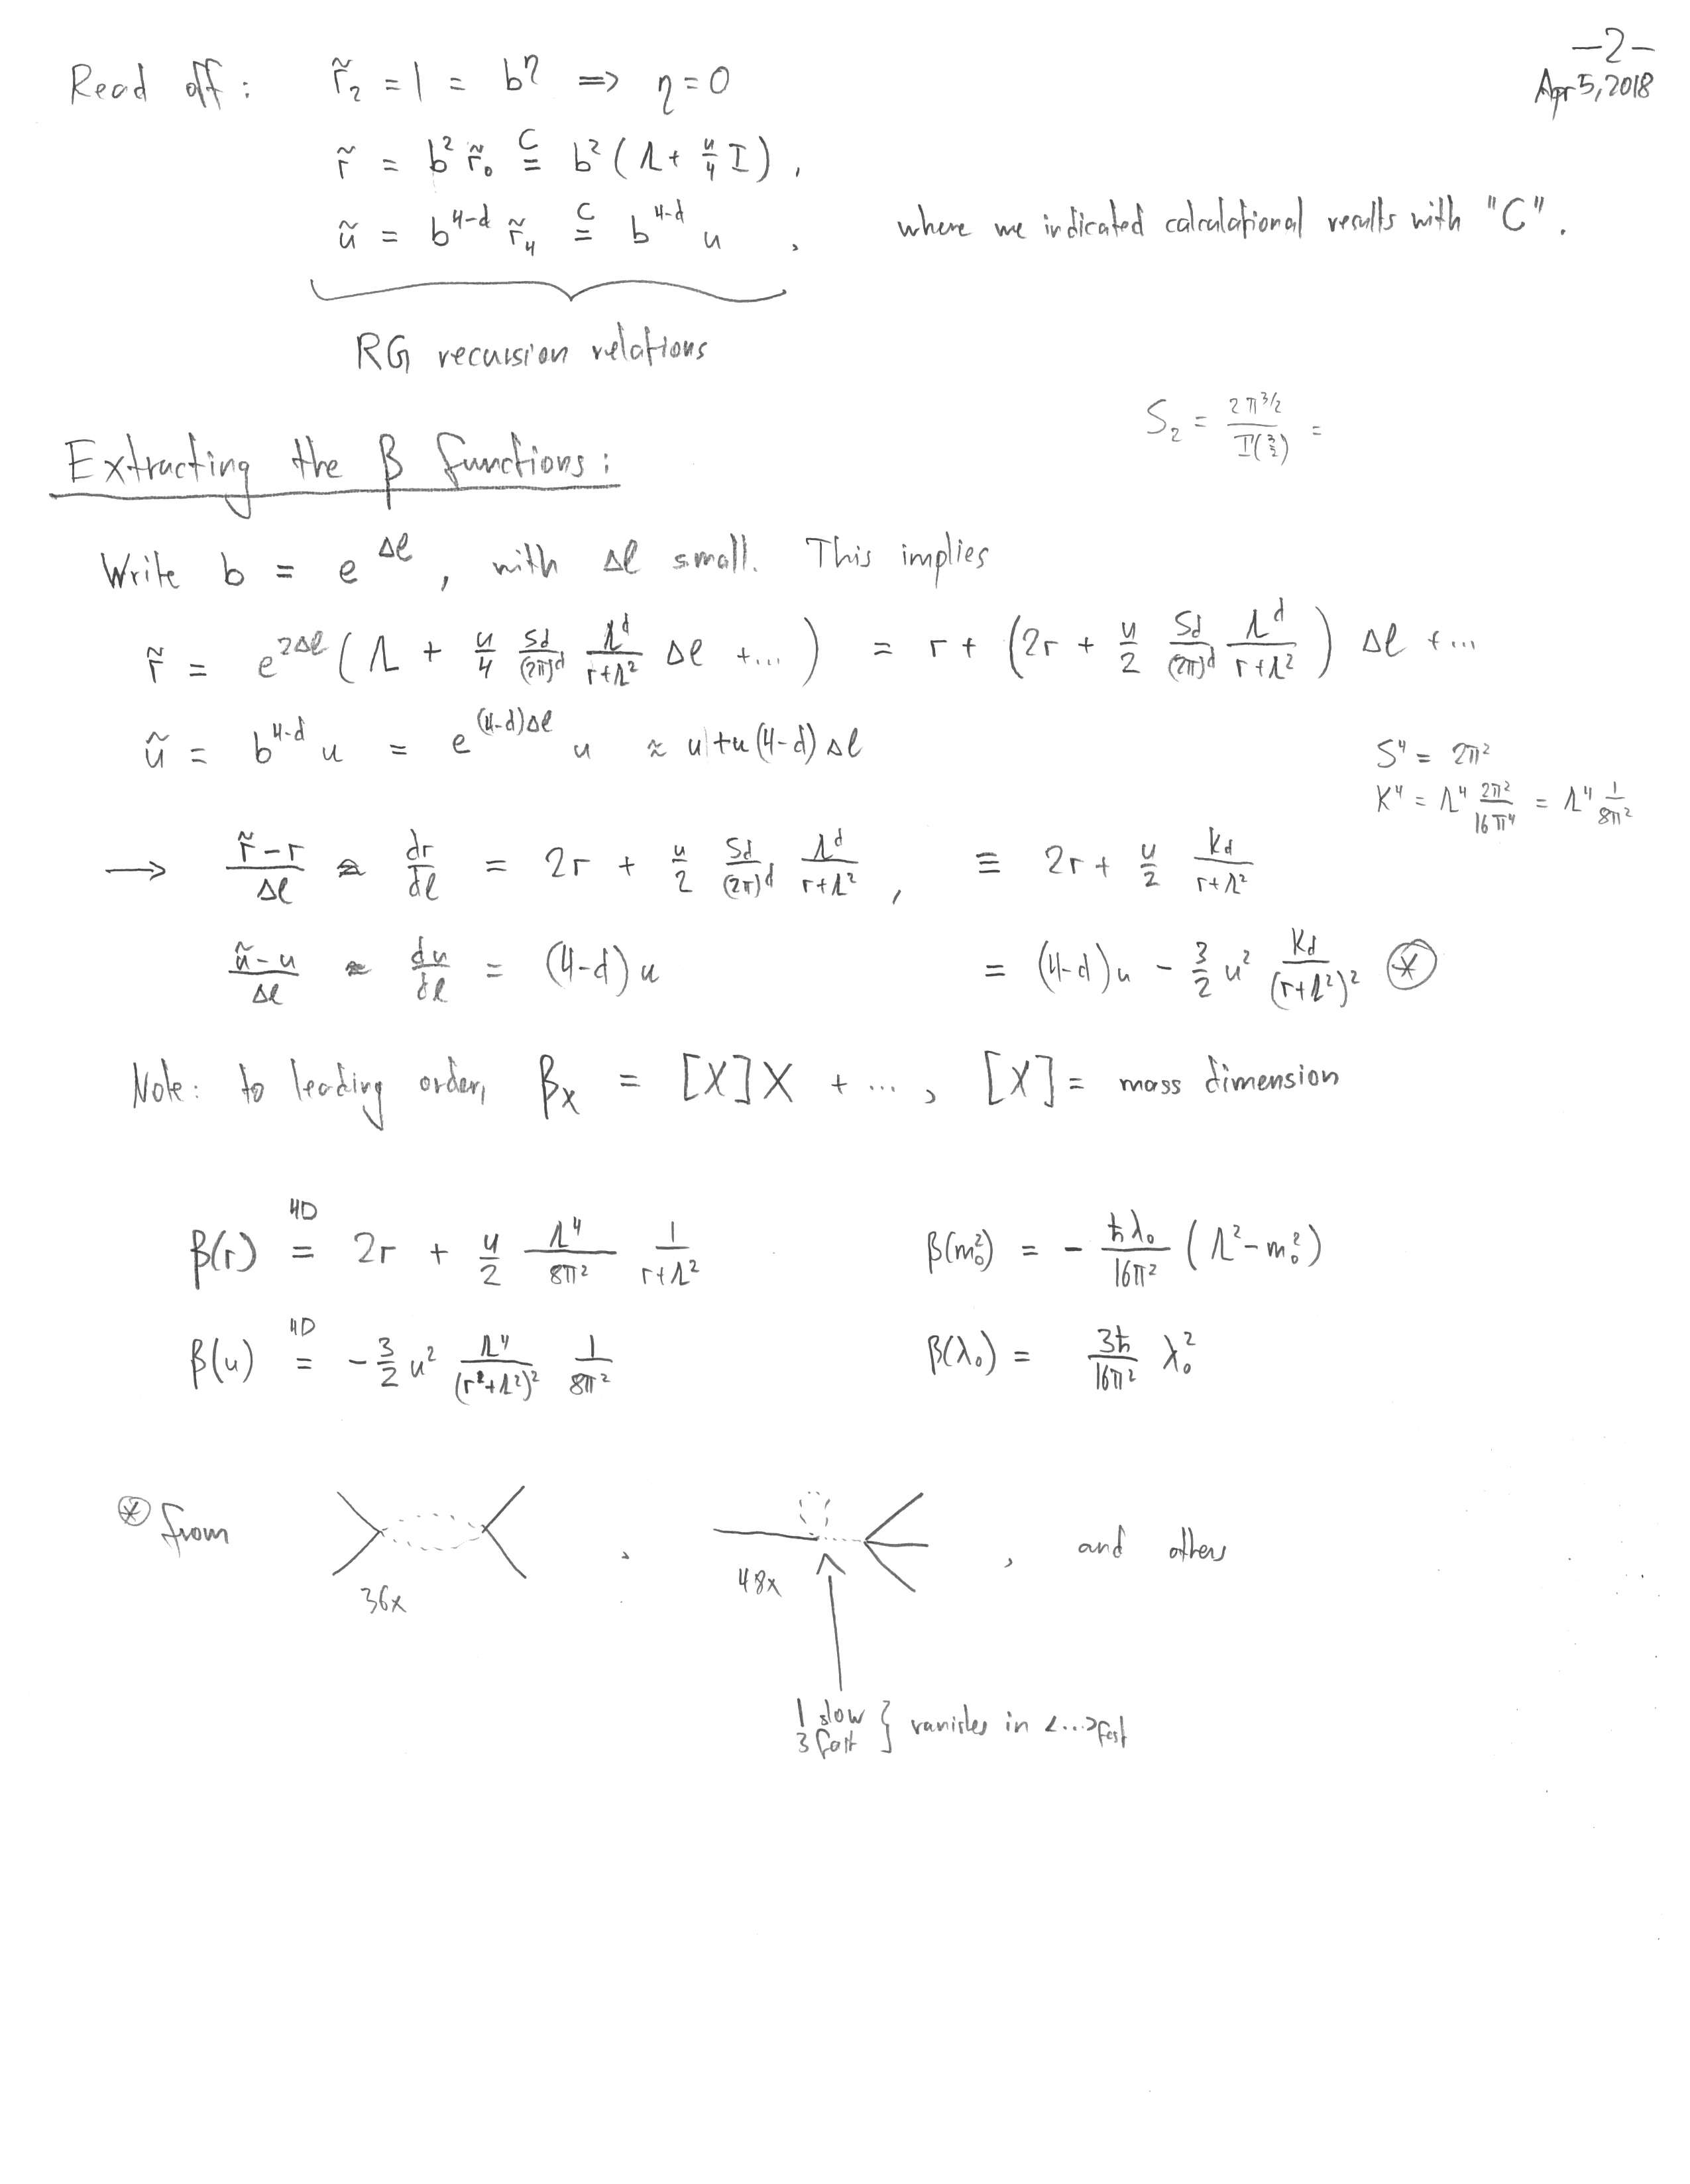 -2-
Apr 5, 2018
Read off: r̃₂ = 1 = b^η ⟹ η = 0
r̃ = b² r̃₀ =^C b² (Λ + u/4 I),
ũ = b^{4-d} r̃₄ =^C b^{4-d} u, where we indicated calculational results with "C".
RG recursion relations
S₂ = 2π^{3/2} / Γ(3/2) =
Extracting the β functions:
Write b = e^{Δℓ}, with Δℓ small. This implies
r̃ = e^{2Δℓ} (Λ + u/4 S_d/(2π)^d Λ^d/(r+Λ²) Δℓ + ...) = r + (2r + u/2 S_d/(2π)^d Λ^d/(r+Λ²)) Δℓ + ...
ũ = b^{4-d} u = e^{(4-d)Δℓ} u ≈ u + u(4-d) Δℓ
S⁴ = 2π²
K⁴ = Λ⁴ 2π²/16π⁴ = Λ⁴ 1/8π²
→ (r̃-r)/Δℓ ≈ dr/dℓ = 2r + u/2 S_d/(2π)^d Λ^d/(r+Λ²), ≡ 2r + u/2 K_d/(r+Λ²)
(ũ-u)/Δℓ ≈ du/dℓ = (4-d) u = (4-d) u - 3/2 u² K_d/(r+Λ²)² ⊛
Note: to leading order, β_X = [X] X + ..., [X] = mass dimension
β(r) =^{4D} 2r + u/2 Λ⁴/8π² 1/(r+Λ²) β(m₀²) = - ħλ₀/16π² (Λ² - m₀²)
β(u) =^{4D} -3/2 u² Λ⁴/(r²+Λ²)² 1/8π² β(λ₀) = 3ħ/16π² λ₀²
⊛ from , , and others
36x 48x
1 slow
3 fast } vanishes in <...>fast